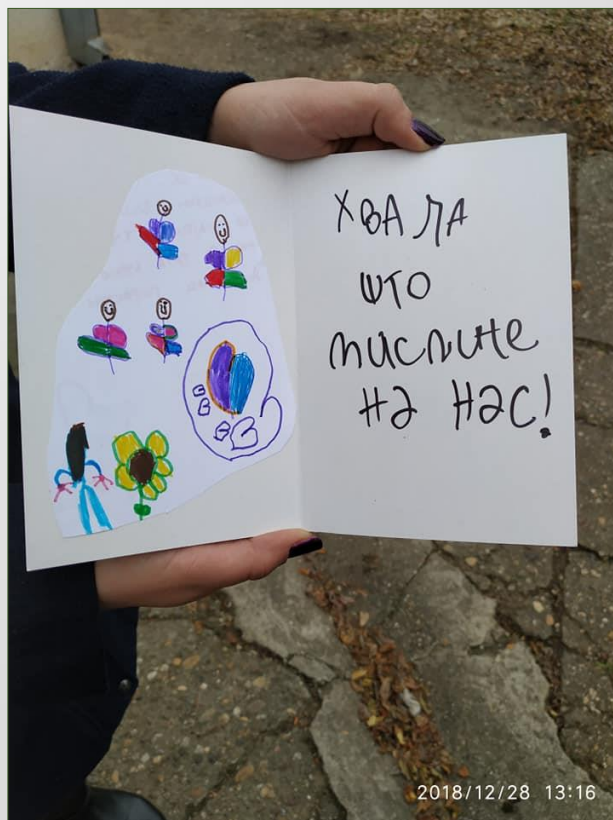 ХВАЛА
ШТО
МИСЛИТЕ
НА НАС!
2018/12/28 13:16